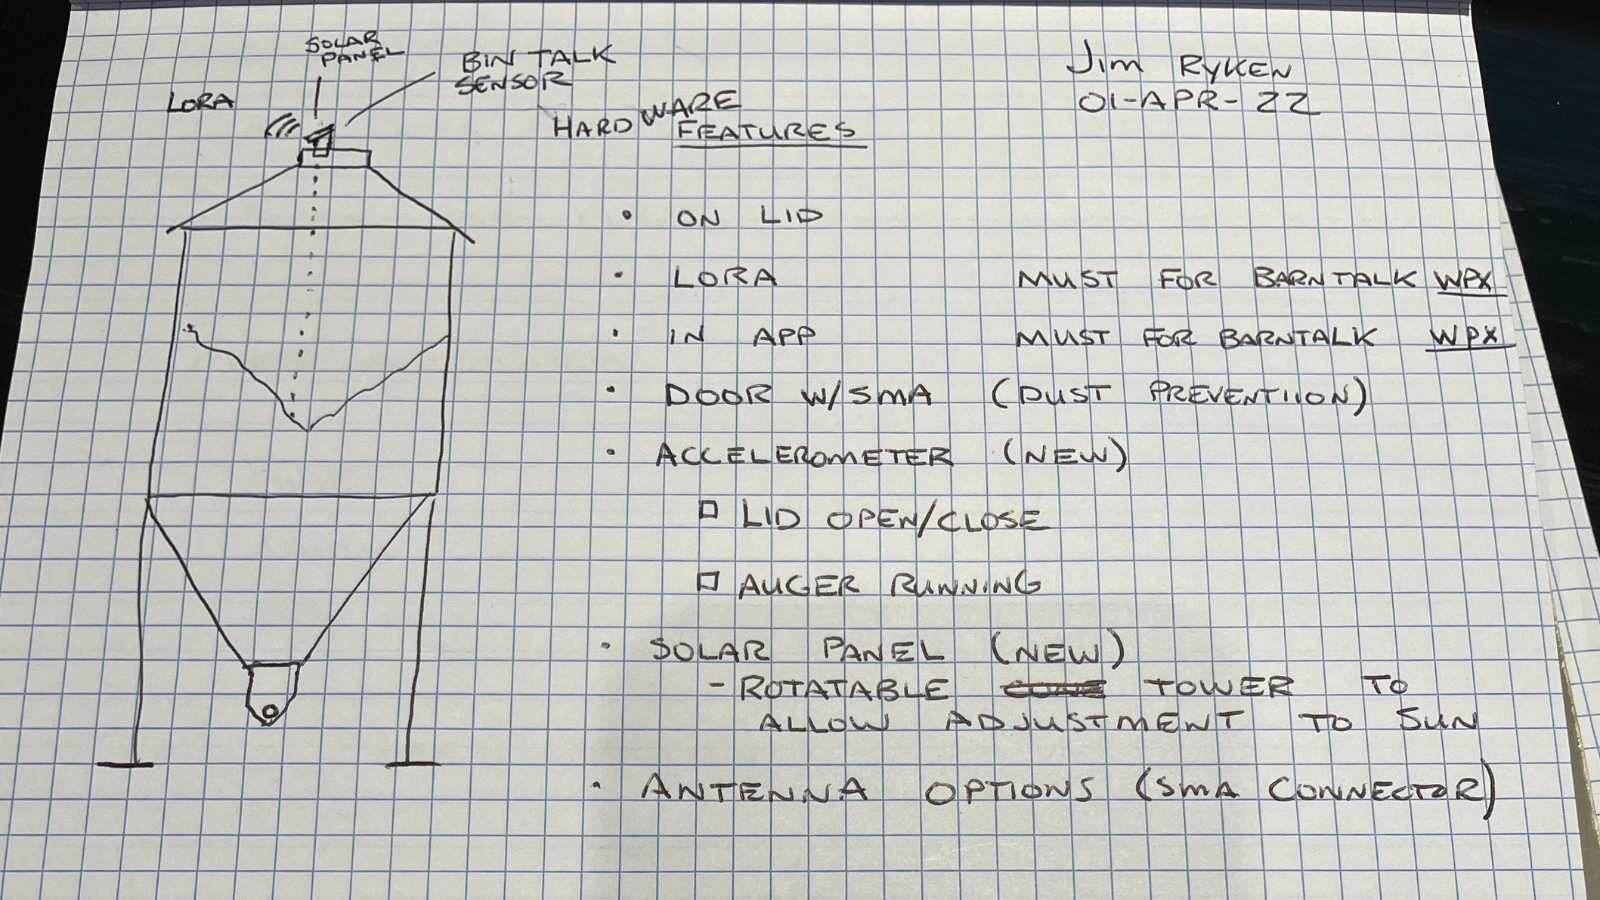 SOLAR
PANEL
BIN TALK
SENSOR
LORA
Jim RYKEN
01-APR-22
HARDWARE
FEATURES
• ON LID
• LORA MUST FOR BARNTALK WPX
• IN APP MUST FOR BARNTALK WPX
• DOOR W/SMA (DUST PREVENTIION)
• ACCELEROMETER (NEW)
□ LID OPEN/CLOSE
□ AUGER RUNNING
• SOLAR PANEL (NEW)
- ROTATABLE TOWER TO
ALLOW ADJUSTMENT TO SUN
• ANTENNA OPTIONS (SMA CONNECTOR)